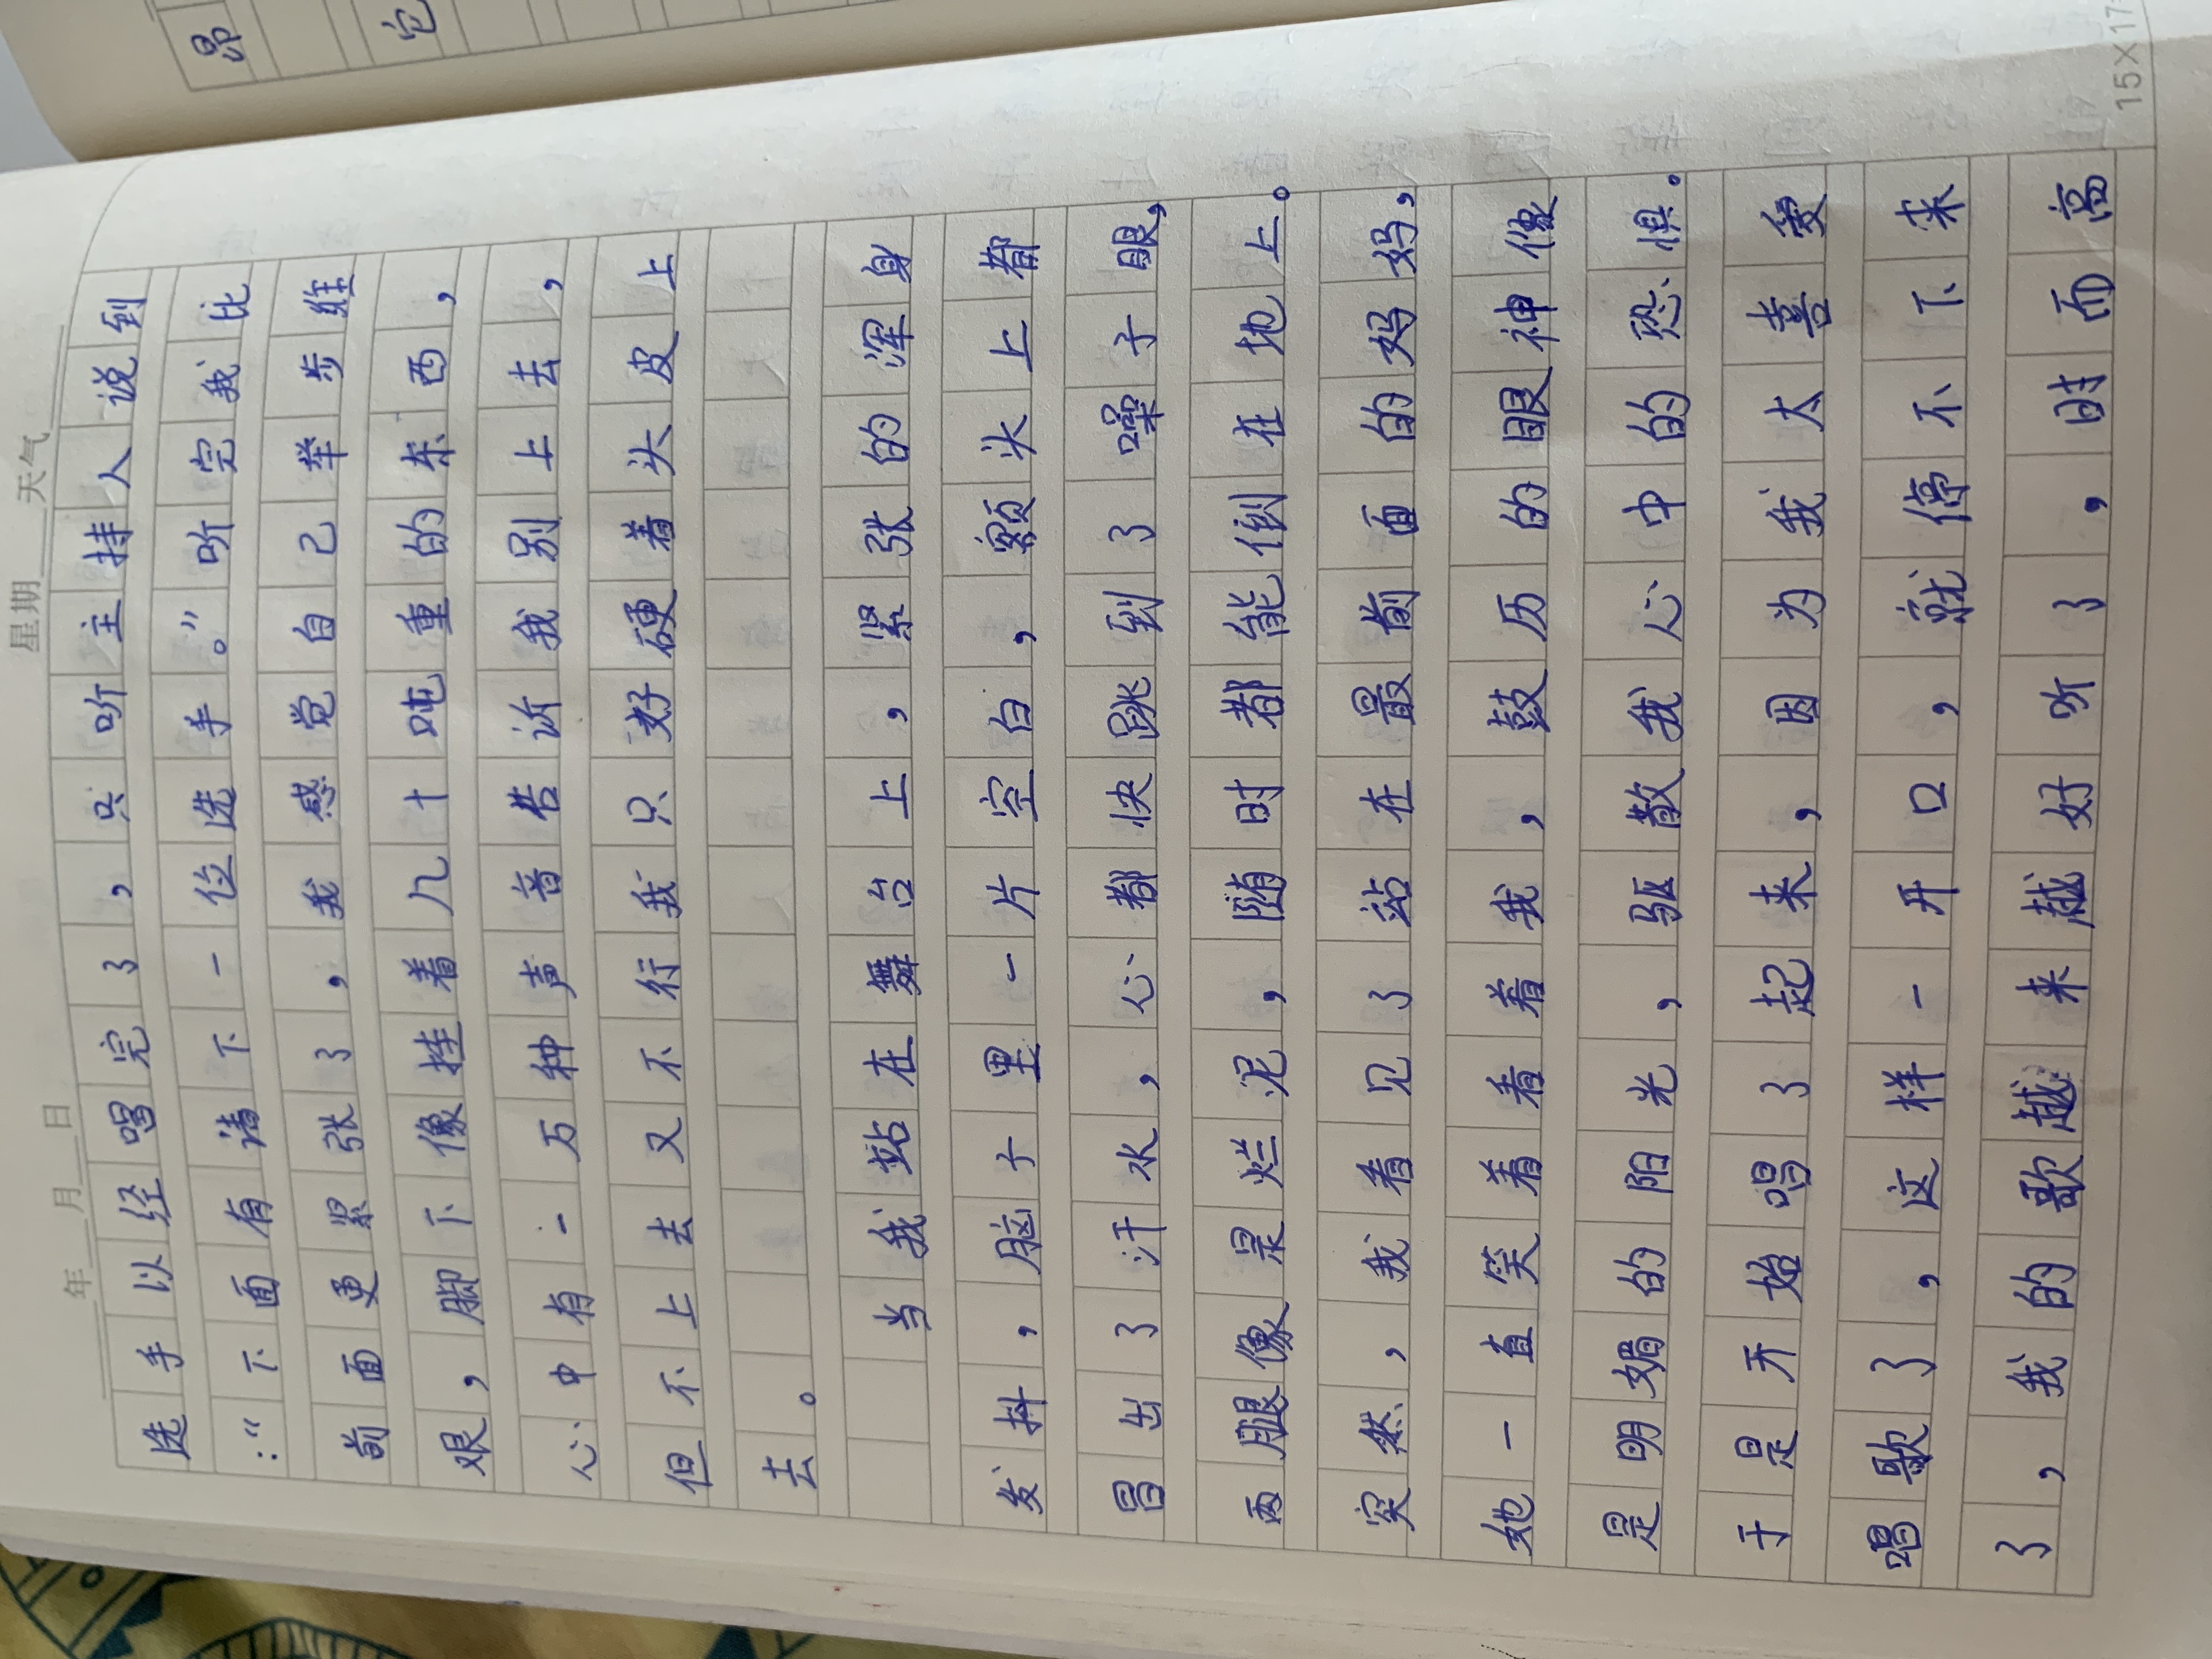 年 月 日 星期 天气
选手以经唱完了，只听主持人说到
：“下面有请下一位选手。”听完我比
前面更紧张了，我感觉自己举步维
艰，脚下像挂着几十吨重的东西，
心中有一万种声音告诉我别上去，
但不上去又不行我只好硬着头皮上
去。
当我站在舞台上，紧张的浑身
发抖，脑子里一片空白，额头上都
冒出了汗水，心都快跳到了嗓子眼，
两腿像是烂泥，随时都能倒在地上。
突然，我看见了站在最前面的妈妈，
她一直笑着看着我，鼓历的眼神像
是明媚的阳光，驱散我心中的恐惧。
于是开始唱了起来，因为我太喜爱
唱歌了，这样一开口，就停不下来
了，我的歌越来越好听了，时而高
15×17=
昂
它